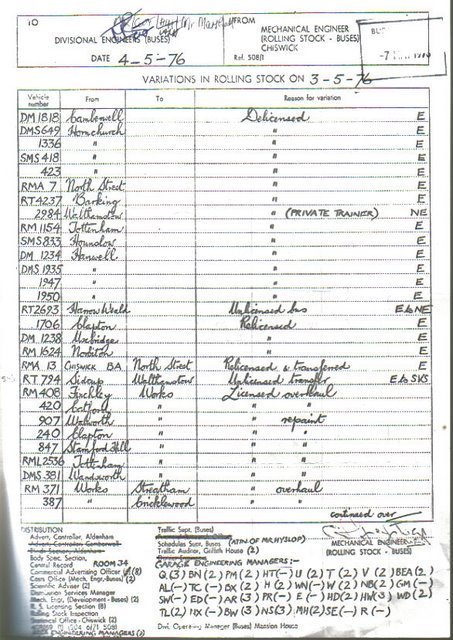 TO
FROM
DIVISIONAL ENGINEERS (BUSES)
MECHANICAL ENGINEER
(ROLLING STOCK - BUSES)
CHISWICK
DATE 4-5-76
Ref. 508/1
VARIATIONS IN ROLLING STOCK ON 3-5-76
Vehicle number From To Reason for variation
DM 1818 Camberwell Delicensed E
DMS 649 Hornchurch " E
1336 " " E
SMS 418 " " E
423 " " E
RMA 7 North Street " E
RT 4237 Barking " E
2984 Walthamstow " (PRIVATE TRAINER) NE
RM 1154 Tottenham " E
SMS 833 Hounslow " E
DM 1234 Hanwell " E
DMS 1935 " " E
1947 " " E
1950 " " E
RT 2693 Harrow Weald Unlicensed bus E to NE
1706 Clapton Relicensed E
DM 1238 Uxbridge " E
RM 1624 Norbiton " E
RMA 13 CHISWICK BA North Street Relicensed & transferred E
RT 794 Sidcup Walthamstow Unlicensed transfer E to SVS
RM 408 Finchley Works Licensed overhaul
420 Catford " " "
907 Walworth " " repaint
240 Clapton " " "
847 Stamford Hill " " "
RML 2536 Tottenham " " "
DMS 381 Wandsworth " " "
RM 371 Works Streatham " overhaul
387 " Cricklewood " "
continued over
DISTRIBUTION
Advert. Controller, Aldenham
Body Spec. Section,
Central Record ROOM 34
Commercial Advertising Officer (8)
Cash Office (Mech. Engr.-Buses) (2)
Scientific Adviser (2)
Distribution Services Manager
Mech. Engr. (Development - Buses) (2)
R. S. Licensing Section (8)
Rolling Stock Inspector
Statistical Office - Chiswick (2)
ENGINEERING MANAGERS (2)
Traffic Supt. (Buses)
Schedules Supt. Buses (ATTN OF MR. HYSLOP)
Traffic Auditor, Griffith House (2)
MECHANICAL ENGINEER
(ROLLING STOCK - BUSES)
GARAGE ENGINEERING MANAGERS:-
Q(3) BN(2) PM(2) HT(-) U(2) T(2) V(2) BEA(2)
AL(-) TC(-) BX(2) H(2) WN(-) W(2) NB(2) GM(-)
SW(-) ED(-) AR(3) PR(-) E(-) HD(2) HW(3) WD(2)
TL(2) NX(-) BW(3) NS(3) MH(2) SE(-) R(-)
Divl. Operating Manager (Buses) Mansion House